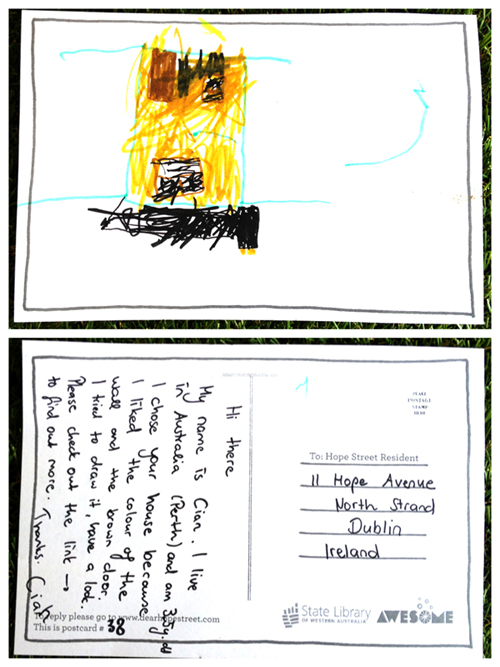 Hi there
My name is Cian. I live
in Australia (Perth) and am 3.5 y. old
I chose your house because
I liked the colour of the
wall and the brown door.
I tried to draw it, have a look.
Please check out the link →
to find out more. Thanks. Cian
To reply please go to www.dearhopestreet.com
This is postcard # 38
PLACE
POSTAGE
STAMP
HERE
To: Hope Street Resident
11 Hope Avenue
North Strand
Dublin
Ireland
State Library
OF WESTERN AUSTRALIA
AWESOME